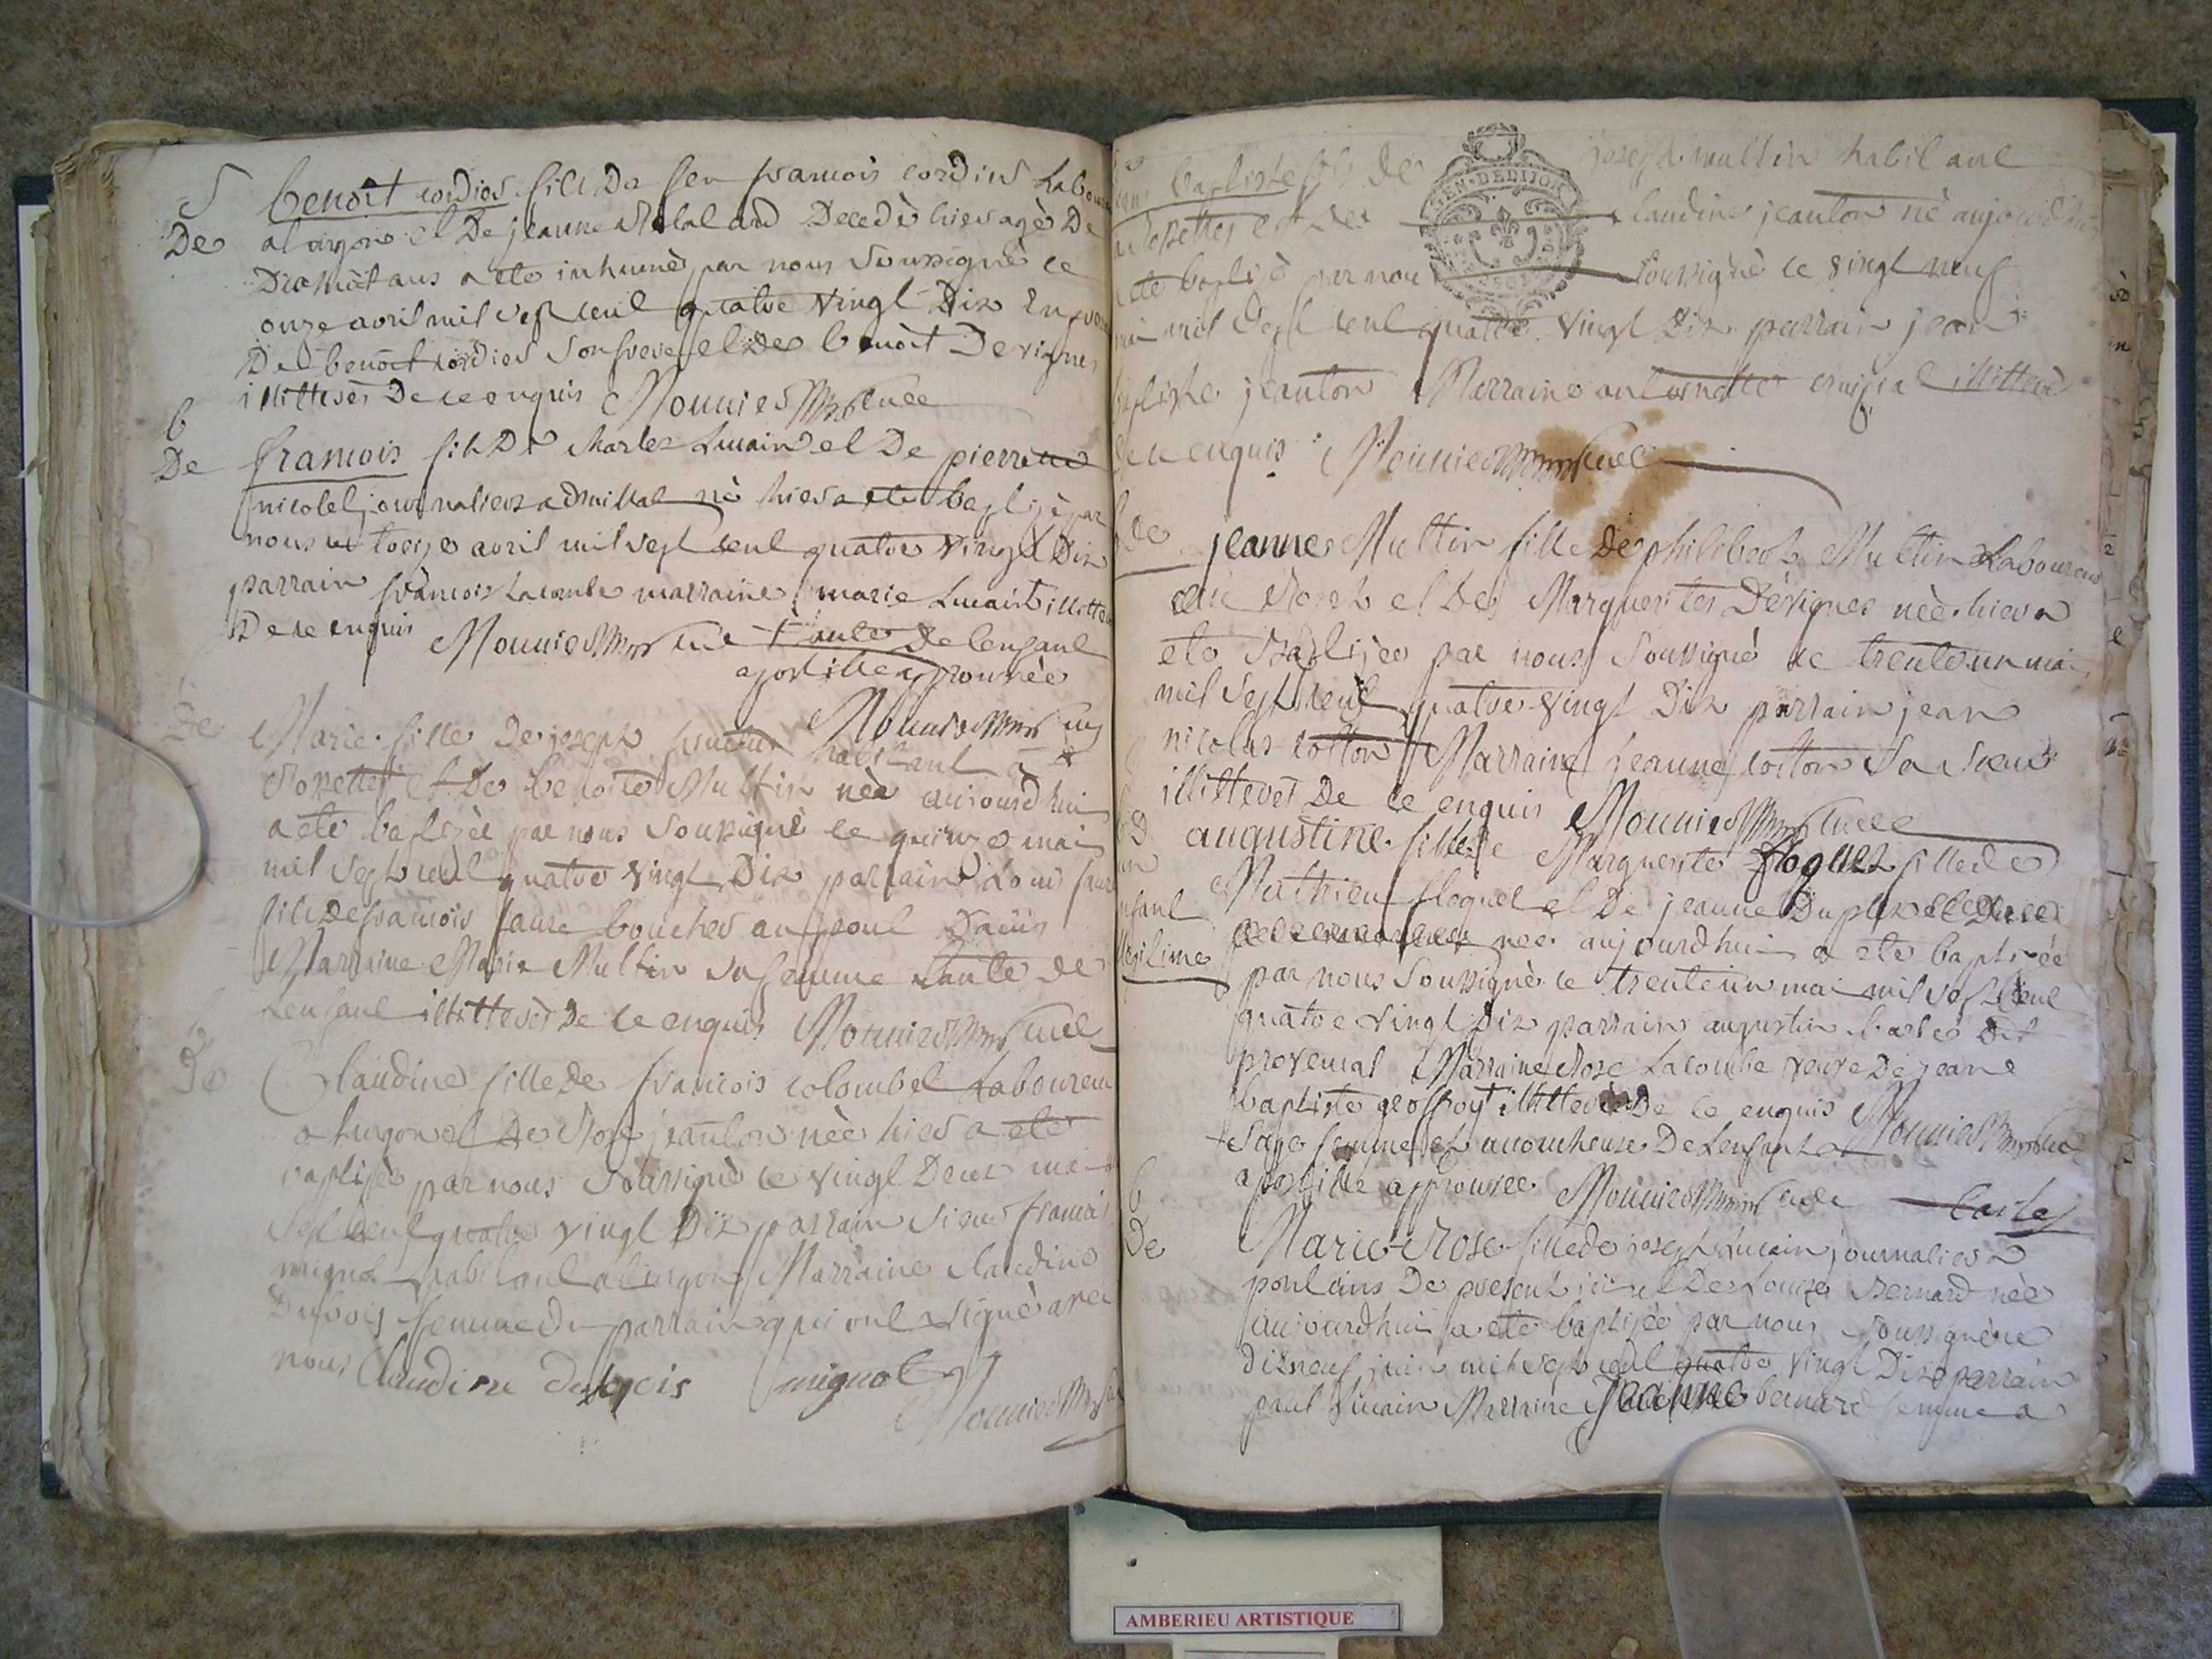 S
De
benoit cordier fils De feu francois cordier Labour
a Luizon et De jeanne Decedè hier agè De
Dixhuit ans a etè inhumè par nous Soussignè ce
onze avril mil sept cent quatre vingt Dix En pre
De benoit cordier Son frere et De benoit Devigne
illitterés De ce enquis Mounier curé
b
De
francois fils De charles Lucain et De pierrette
nicolet journaliers né hier a eté baptisè par
nous ce treize avril mil sept cent quatre vingt Dix
parrain francois Lacombe marraine marie Lucain illitte
De ce enquis Mounier curé + tante De lenfant
apostille approuvée
Mounier curé
De
Marie fille De joseph habitant a
Rossettes et De benoite Multin née aujourdhui
a eté baptisée par nous Soussigné le quinze mai
mil sept cent quatre vingt Dix parrain Louis faure
fils De francois faure boucher au pont Dains
Marraine Marie Multin Sa femme tante de
Lenfant illitterés De ce enquis Mounier curé
b
De
Claudine fille de francois colombet Laboureur
a Luizon et De Rose jeanton née hier a eté
baptisée par nous Soussignè le vingt Deux mai
Sept cent quatre vingt Dix parrain Sieur francois
mignot habitant a Luizon Marraine claudine
Dubois femme du parrain qui ont signè avec
nous Claudine dubois mignot
Mounier
baptiste fils de joseph multin habitant
Rossettes et De claudine jeanton né aujourdhui
eté baptisè par nou Soussignè le vingt neuf
mai mil Sept cent quatre vingt Dix parrain jean
baptiste jeanton Marraine illitterés
De ce enquis Mounier curé
GEN·DE DIJON
b de
jeanne Multin fille De philibert Multin Laboureur
et De Marguerites Devignes née hier a
eté Baptisée par nous Soussignè le trente un mai
mil Sept cent quatre vingt Dix parrain jean
nicolas cotton Marraine jeanne cotton Sa Sœur
illitterés De ce enquis Mounier curé
D
un
enfant
illegitime
augustine fille de Marguerite floquet fille de
Mathieu floquet et De jeanne Duplex
née aujourdhui a eté baptisée
par nous Soussigné le trente un mai mil sept cent
quatre vingt Dix parrain augustin Dit
provencal Marraine Rose Lacombe veuve De jean
baptiste geoffroy illitterés De ce enquis Mounier curé
+ Sage femme et accoucheuse De Lenfant
apostille approuvée Mounier curé
b
De
Marie-Rose fille de joseph Lucain journalier a
pont dins De present ici et De Louise Bernard née
aujourdhui a eté baptisée par nous Soussigné ce
dixneuf juin mil sept cent quatre vingt Dix parrain
paul Lucain Marraine jeanne bernard femme a
AMBERIEU ARTISTIQUE